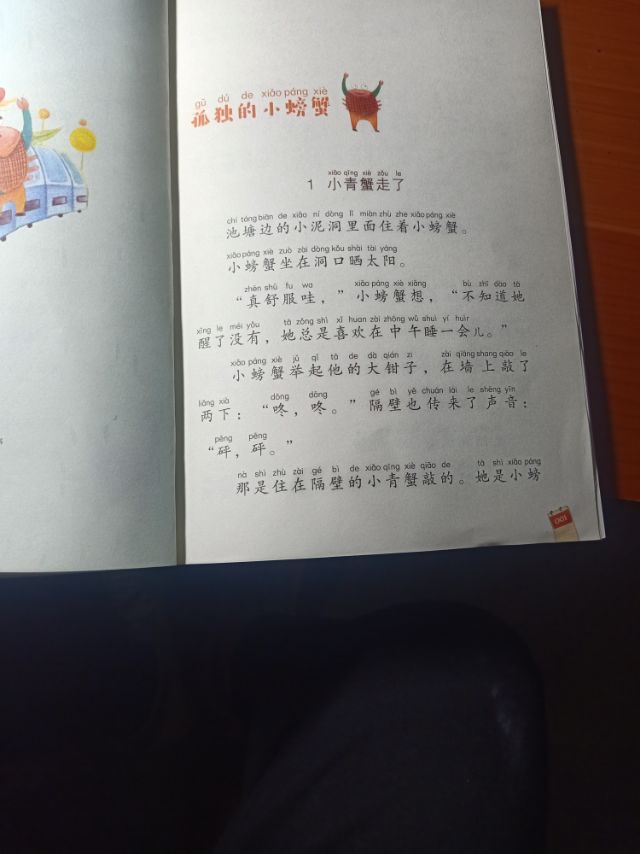 gū dú de xiǎo páng xiè
孤独的小螃蟹
xiǎo qīng xiè zǒu le
1 小青蟹走了
chí táng biān de xiǎo ní dòng lǐ miàn zhù zhe xiǎo páng xiè
池塘边的小泥洞里面住着小螃蟹。
xiǎo páng xiè zuò zài dòng kǒu shài tài yáng
小螃蟹坐在洞口晒太阳。
zhēn shū fu wa xiǎo páng xiè xiǎng bù zhī dào tā
“真舒服哇，”小螃蟹想，“不知道她
xǐng le méi yǒu tā zǒng shì xǐ huan zài zhōng wǔ shuì yí huìr
醒了没有，她总是喜欢在中午睡一会儿。”
xiǎo páng xiè jǔ qǐ tā de dà qián zi zài qiáng shang qiāo le
小螃蟹举起他的大钳子，在墙上敲了
liǎng xià dōng dōng gé bì yě chuán lái le shēng yīn
两下：“咚，咚。”隔壁也传来了声音：
pēng pēng
“砰，砰。”
nà shì zhù zài gé bì de xiǎo qīng xiè qiāo de tā shì xiǎo páng
那是住在隔壁的小青蟹敲的。她是小螃
001